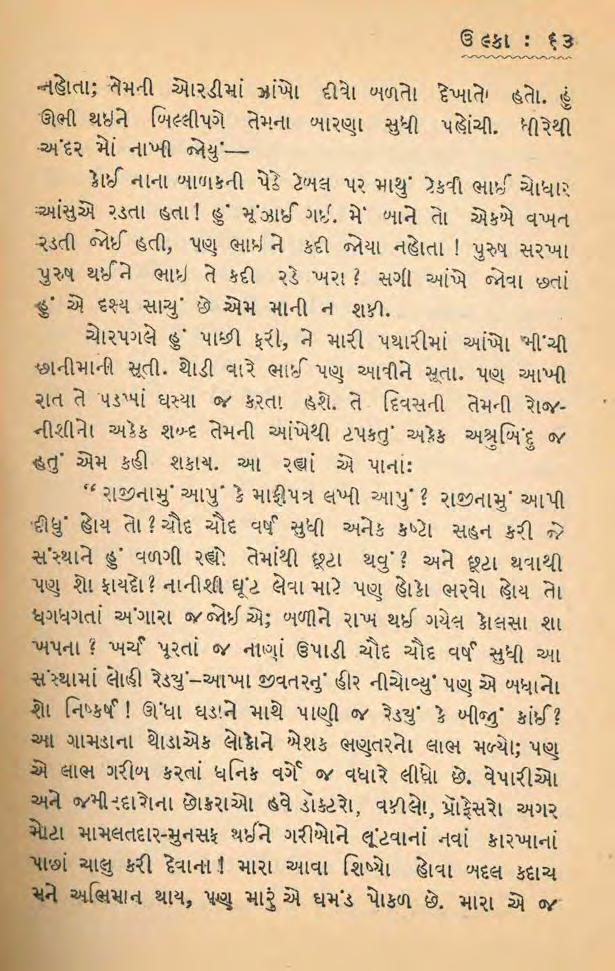 ઉલ્કા : ૬૩
નહોતા; તેમની ઓરડીમાં ઝાંખો દીવો બળતો દેખાતો હતો. હું
ઊભી થઇને બિલ્લીપગે તેમના બારણા સુધી પહોંચી. ધીરેથી
અંદર મોં નાખી જોયું—
કોઈ નાના બાળકની પેઠે ટેબલ પર માથું ટેકવી ભાઈ ચોધાર
આંસુએ રડતા હતા! હું મૂંઝાઈ ગઈ. મેં બાને તો એકબે વખત
રડતી જોઈ હતી, પણ ભાઈને કદી જોયા નહોતા ! પુરુષ સરખા
પુરુષ થઈને ભાઈ તે કદી રડે ખરા? સગી આંખે જોવા છતાં
હું એ દૃશ્ય સાચું છે એમ માની ન શકી.
ચોરપગલે હું પાછી ફરી, ને મારી પથારીમાં આંખો મીંચી
છાનીમાની સૂતી. થોડી વારે ભાઈ પણ આવીને સૂતા. પણ આખી
રાત તે પડખાં ઘસ્યા જ કરતા હશે. તે દિવસની તેમની રોજ-
નીશીનો અકેક શબ્દ તેમની આંખેથી ટપકતું અકેક અશ્રુબિંદુ જ
હતું એમ કહી શકાય. આ રહ્યાં એ પાનાં:
“રાજીનામું આપું કે માફીપત્ર લખી આપું ? રાજીનામું આપી
દીધું હોય તો ? ચૌદ ચૌદ વર્ષ સુધી અનેક કષ્ટો સહન કરી જે
સંસ્થાને હું વળગી રહ્યો તેમાંથી છૂટા થવું ? અને છૂટા થવાથી
પણ શો ફાયદો? નાનીશી ઘૂંટ લેવા માટે પણ હોકો ભરવો હોય તો
ધગધગતાં અંગારા જ જોઈએ; બળીને રાખ થઈ ગયેલ કોલસા શા
ખપના ? ખર્ચ પૂરતાં જ નાણાં ઉપાડી ચૌદ ચૌદ વર્ષ સુધી આ
સંસ્થામાં લોહી રેડ્યું–આખા જીવતરનું હીર નીચોવ્યું પણ એ બધાનો
શો નિષ્કર્ષ ! ઊંધા ઘડાને માથે પાણી જ રેડ્યું કે બીજું કાંઈ?
આ ગામડાના થોડાએક લોકોને બેશક ભણતરનો લાભ મળ્યો; પણ
એ લાભ ગરીબ કરતાં ધનિક વર્ગે જ વધારે લીધો છે. વેપારીઓ
અને જમીનદારોના છોકરાઓ હવે ડૉક્ટરો, વકીલો, પ્રૉફેસરો અગર
મોટા મામલતદાર-મુનસફ થઈને ગરીબોને લૂંટવાનાં નવાં કારખાનાં
પાછાં ચાલુ કરી દેવાના ! મારા આવા શિષ્યો હોવા બદલ કદાચ
મને અભિમાન થાય, પણ મારું એ ઘમંડ પોકળ છે. મારા એ જ